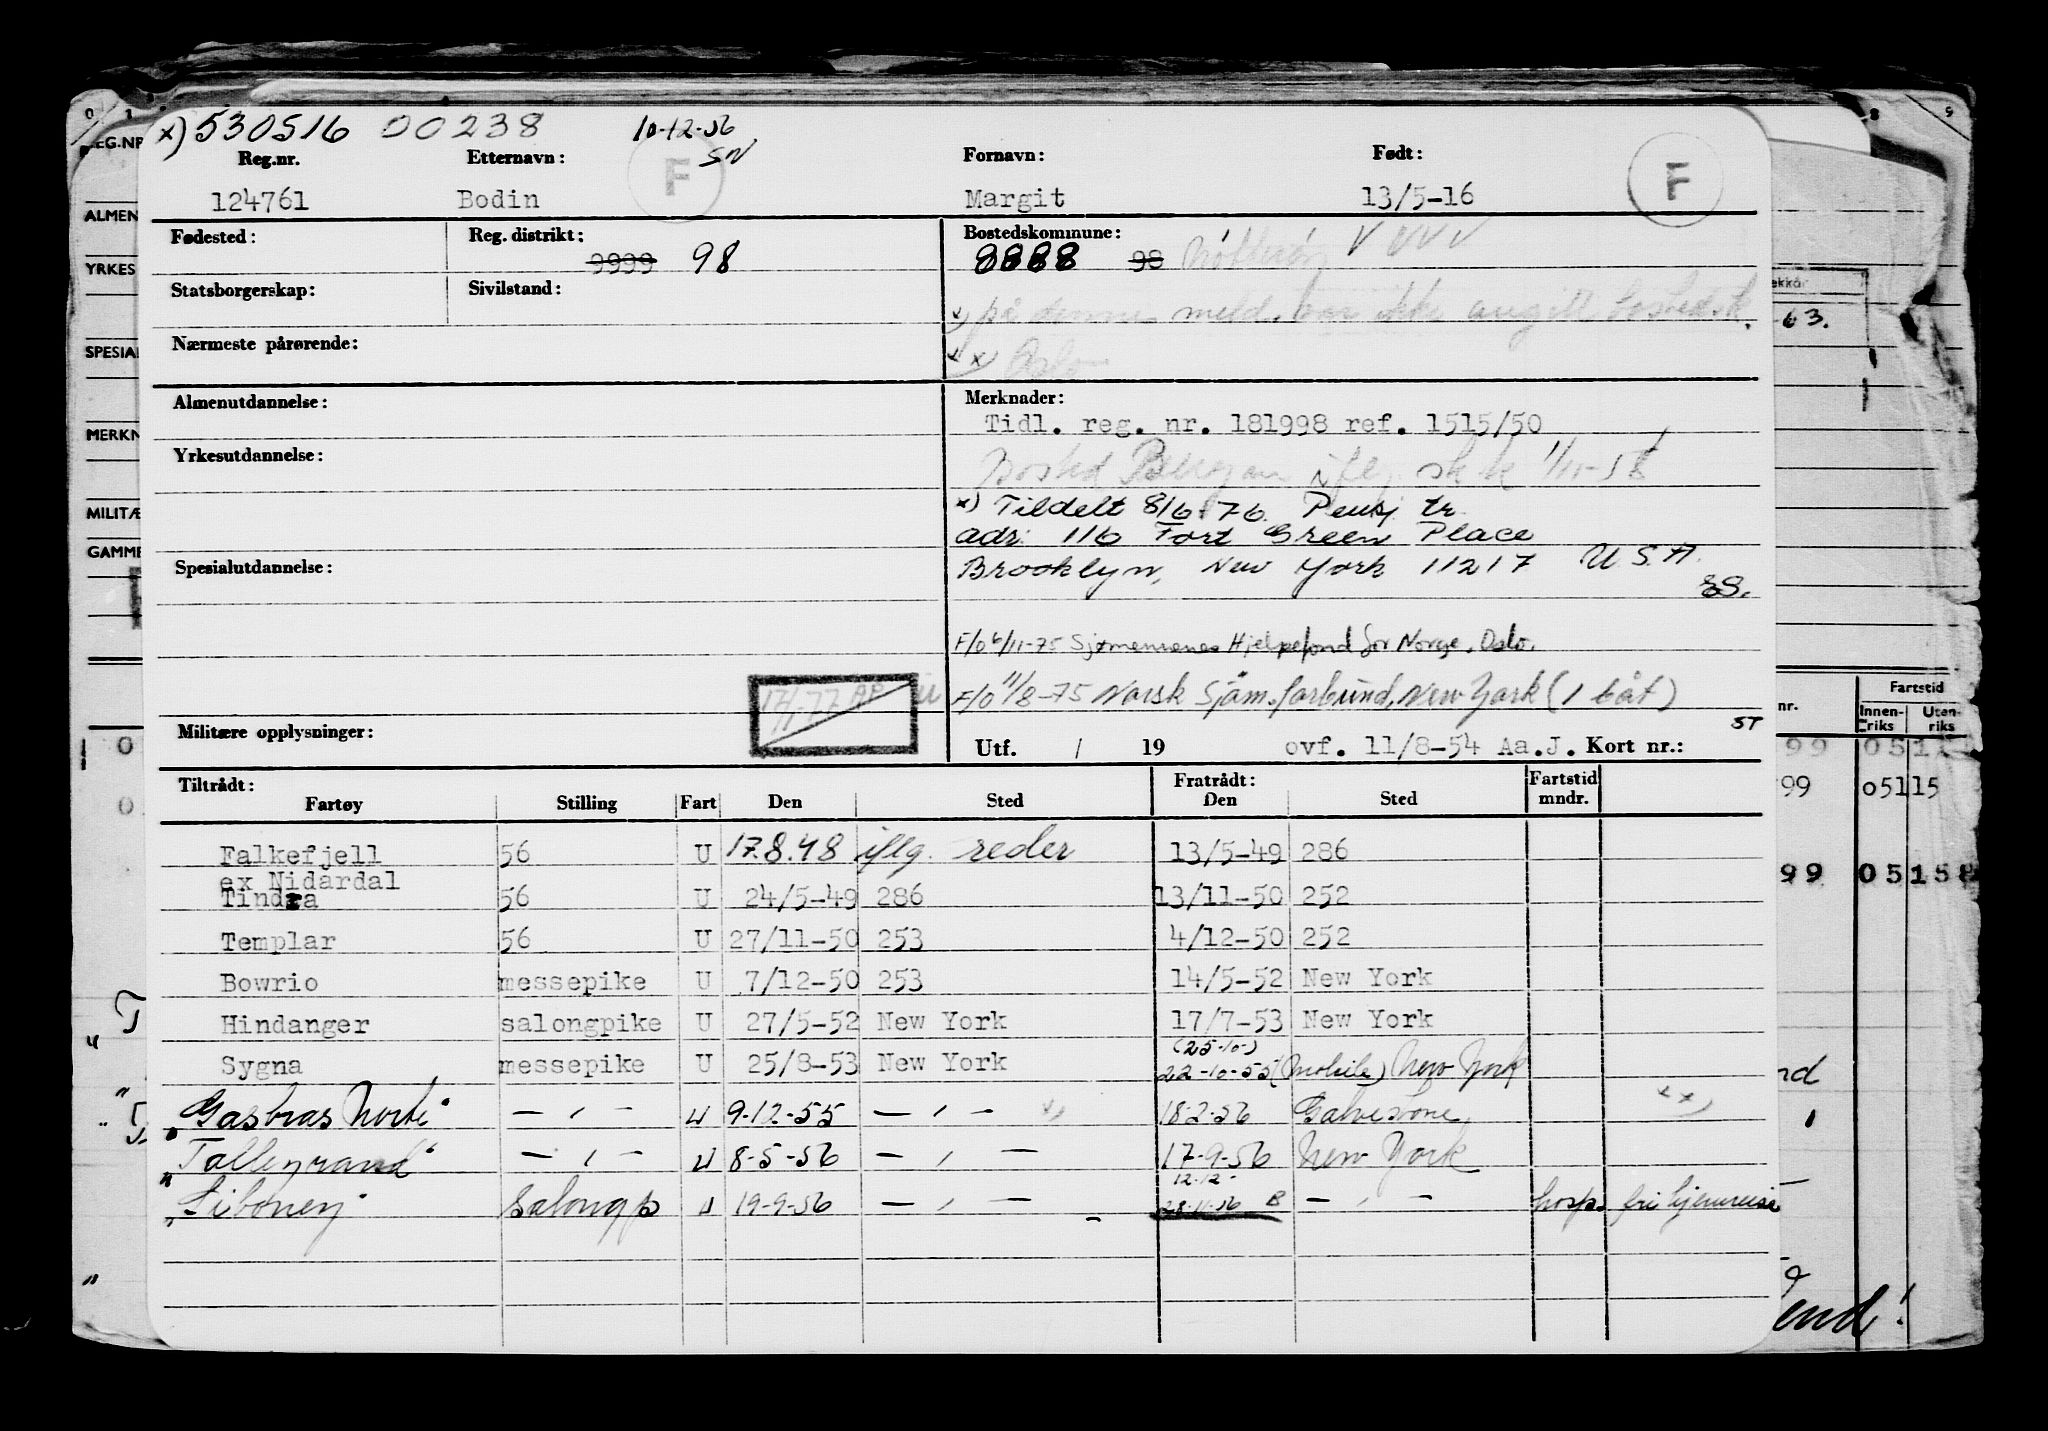 x) 530516 00238 10-12-56
Reg.nr. Etternavn: SN F Fornavn: Født: F
124761 Bodin Margit 13/5-16
Fødested: Reg. distrikt: Bostedskommune:
9999 98 8888 98
Statsborgerskap: Sivilstand:
x) på denne meld. var ikke angitt bostedsk.
Nærmeste pårørende:
xx) Oslo
Almenutdannelse: Merknader:
Tidl. reg. nr. 181998 ref. 1515/50
Yrkesutdannelse: Bosted Bergen iflg. 1/11-58
x) Tildelt 8/6-76 Pensj tr.
adr: 116 Fort Green Place
Spesialutdannelse: Brooklyn, New York 11217 U.S.A.
F/o 6/11-75 Sjømennenes Hjelpefond for Norge, Oslo.
17/1-77 AP F/O 11/8-75 Norsk Sjøm.forbund, New York (1 båt)
ST
Militære opplysninger: Utf. / 19 ovf. 11/8-54 Aa.J. Kort nr.:
Tiltrådt: Fratrådt: Fartstid
Fartøy Stilling Fart Den Sted Den Sted mndr.
Falkefjell 56 U 17.8.48 iflg. reder 13/5-49 286
ex Nidardal
Tindra 56 U 24/5-49 286 13/11-50 252
Templar 56 U 27/11-50 253 4/12-50 252
Bowrio messepike U 7/12-50 253 14/5-52 New York
Hindanger salongpike U 27/5-52 New York 17/7-53 New York
(25-10-)
Sygna messepike U 25/8-53 New York 22-10-55 (Mobile) New York
"Gasbras Norte" — " — U 9-12-55 — " — x) 18-2-56 Galvestone xx)
"Talleyrand" — " — U 8-5-56 — " — 17-9-56 New York
12-12-
"Siboney" Salongp U 19-9-56 — " — 28-11-56 B — " — hosp. fri hjemreise
REG.NR
ALMEN
YRKES
SPESIAL
MERKN
MILITÆ
GAMME
-63.
Fartstid
nr. Innenriks Utenriks
99 051 15
99 05158
end!